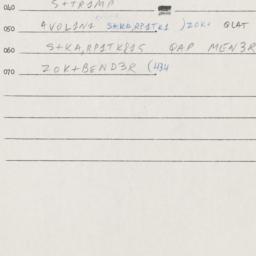 040 S+TR1MP
050 AVOL1N1 S+KA,RP1TK1 )ZOK+ QLAT
060 S+KA,RP1TK815 QAP MEN3R
070 ZOK+BEND3R (434